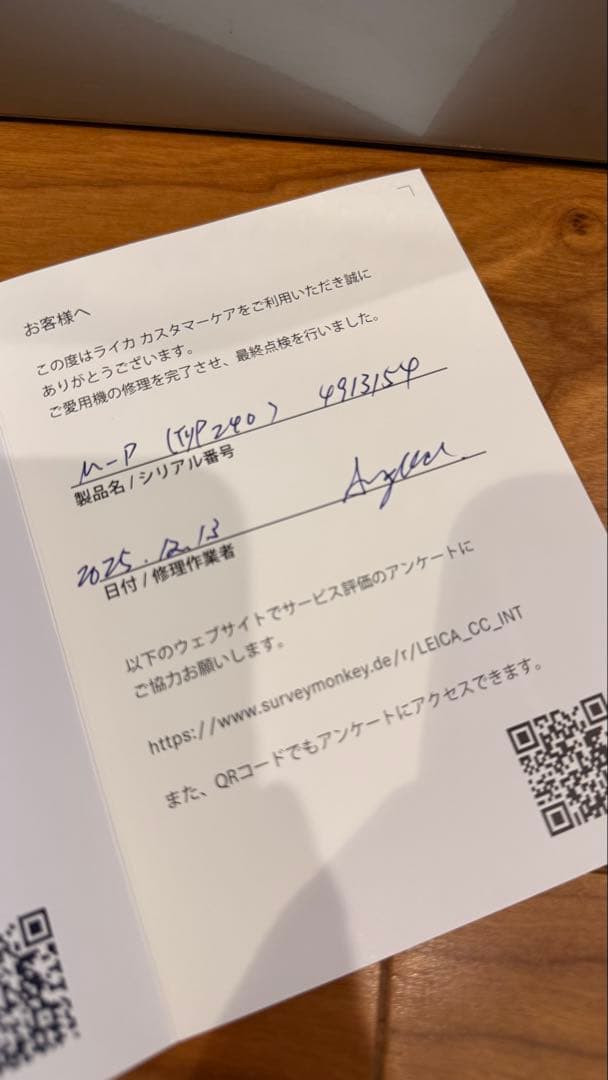 お客様へ
この度はライカ カスタマーケアをご利用いただき誠に
ありがとうございます。
ご愛用機の修理を完了させ、最終点検を行いました。
M-P (TYP240) 4913154
製品名 / シリアル番号
2025.12.13
日付 / 修理作業者
以下のウェブサイトでサービス評価のアンケートに
ご協力お願いします。
https://www.surveymonkey.de/r/LEICA_CC_INT
また、QRコードでもアンケートにアクセスできます。